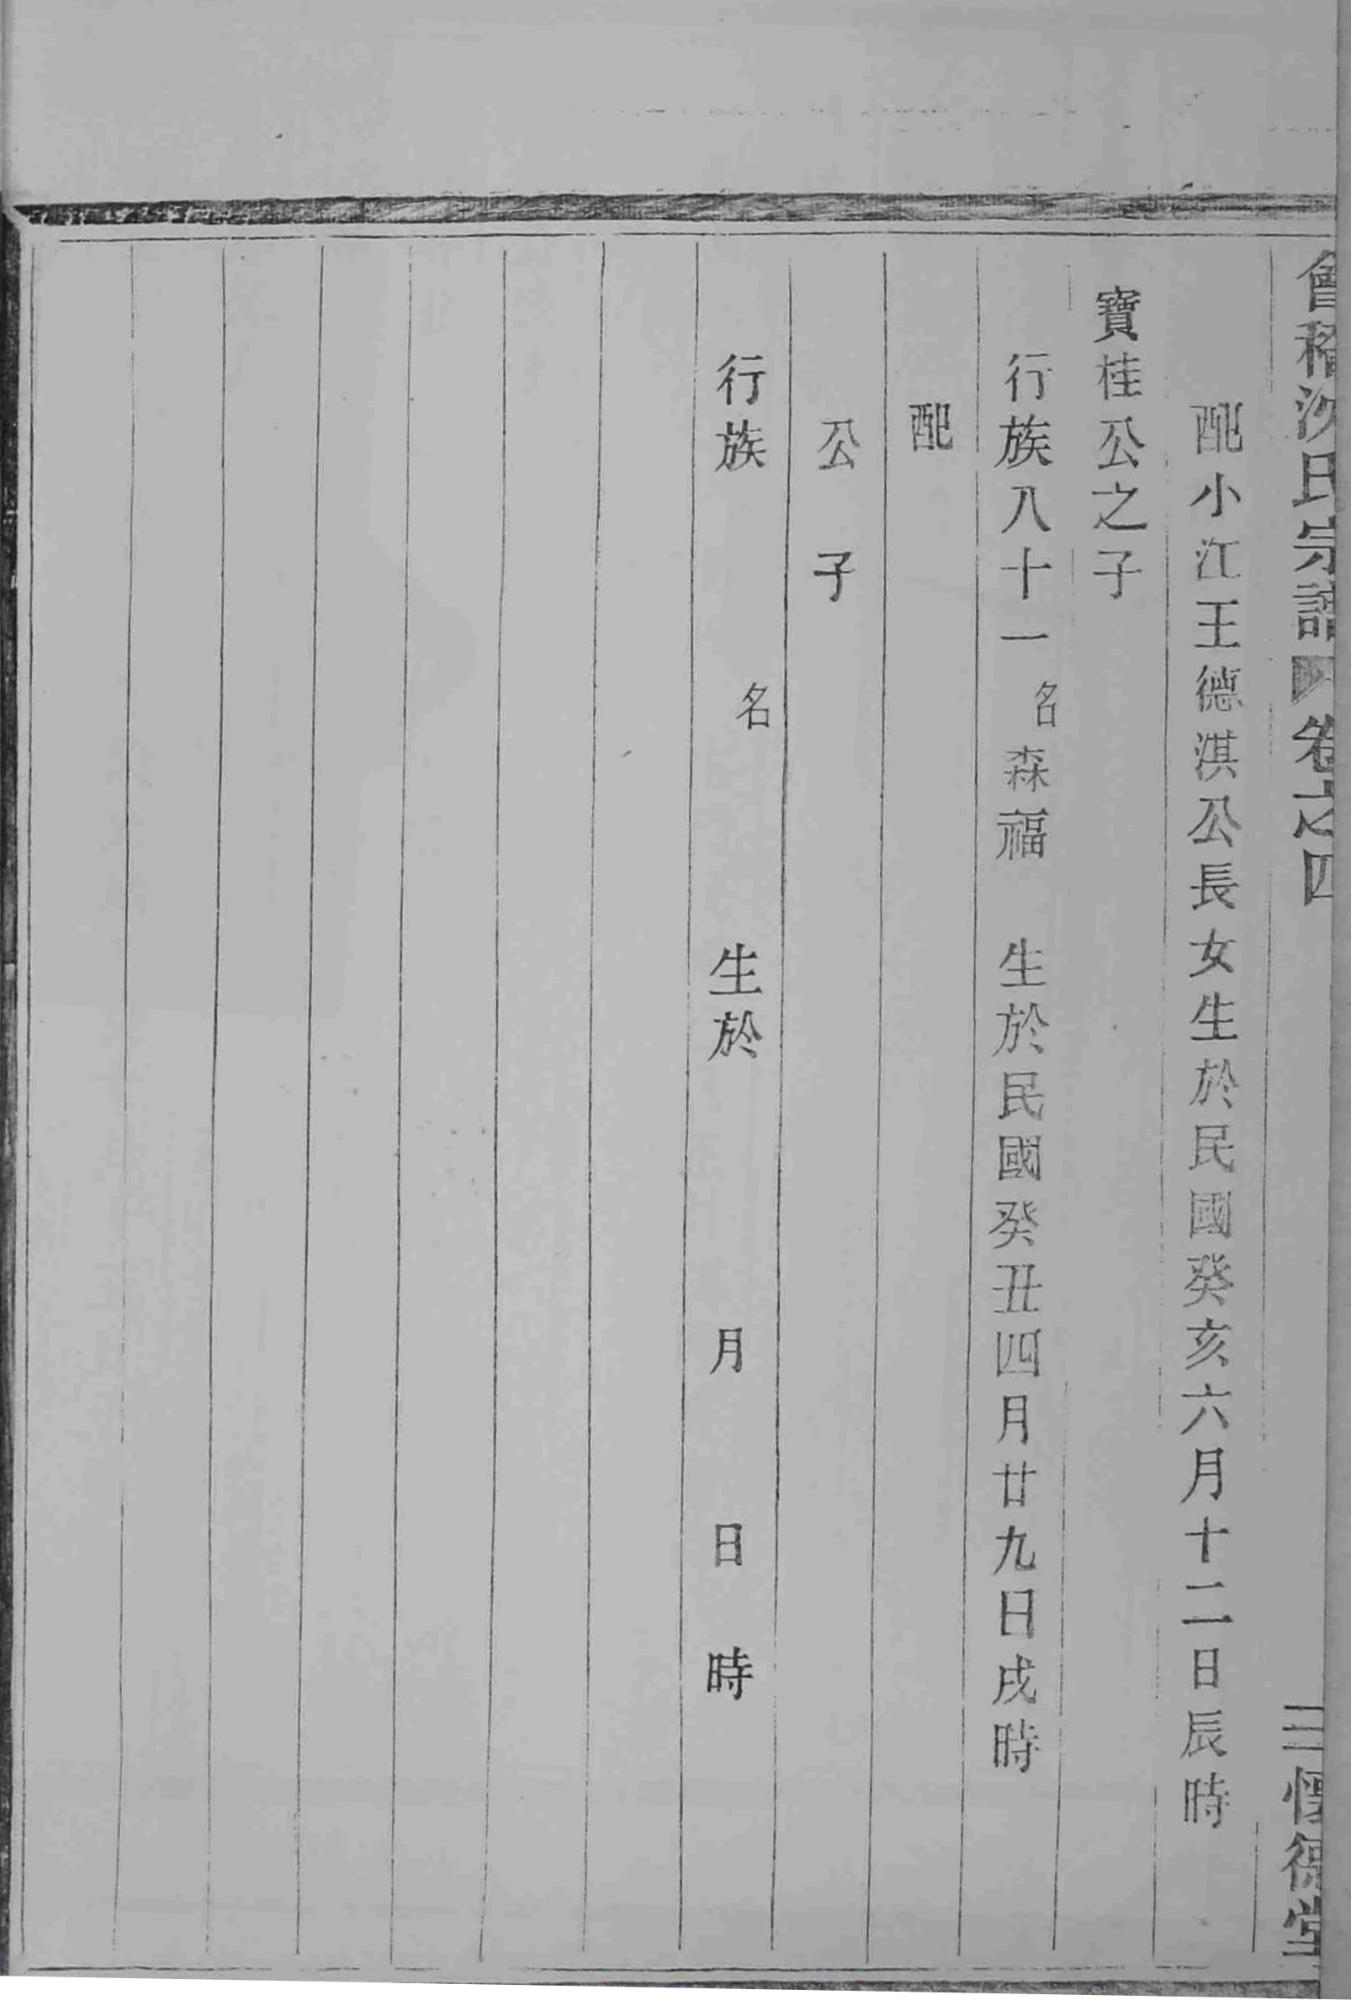 會稽沈氏宗譜 卷之四 三 懷德堂
配小江王德淇公長女生於民國癸亥六月十二日辰時
寶桂公之子
行族八十一 名森福 生於民國癸丑四月廿九日戌時
配
公 子
行族 名 生於 月 日 時